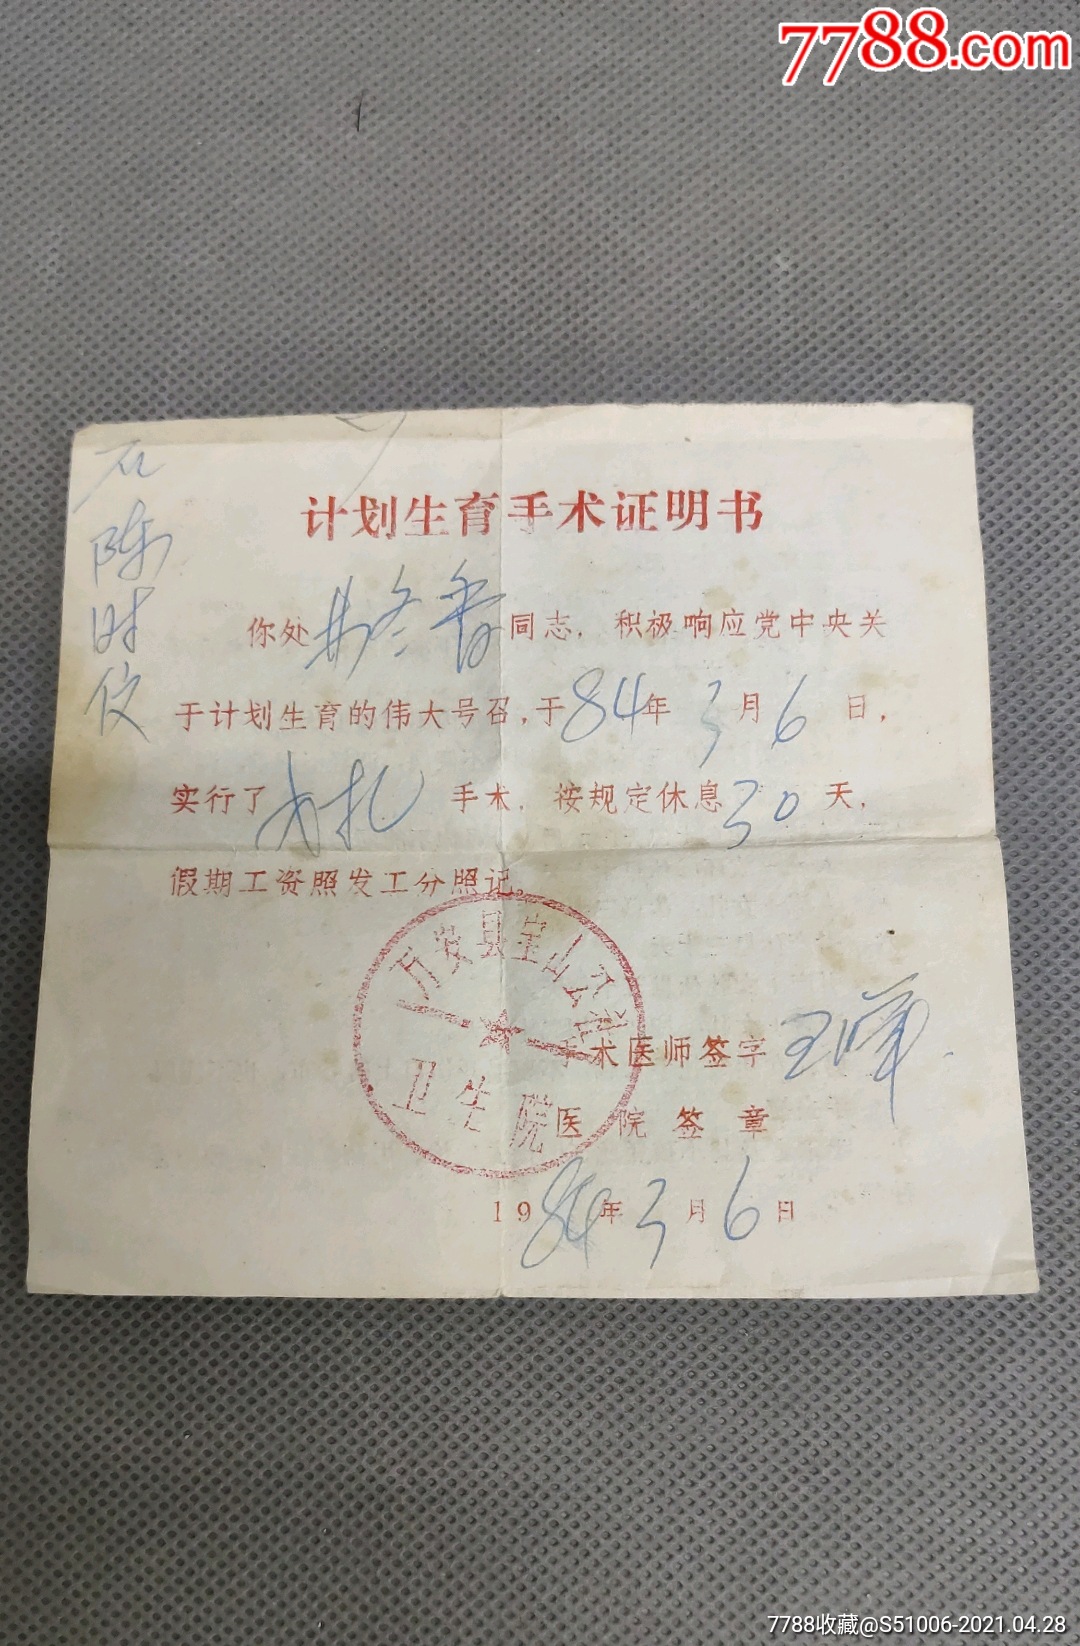 7788.com
计划生育手术证明书
陈时仪
你处 冬香 同志，积极响应党中央关
于计划生育的伟大号召，于84年3月6日，
实行了 扎 手术，按规定休息30天，
假期工资照发工分照记。
万安县宝山公社
卫生院
手术医师签字 王
医院签章
1984年3月6日
7788收藏@S51006-2021.04.28